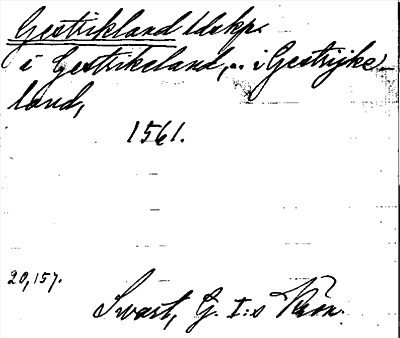 Gestrikland ldskp.
i Gestrikeland, .. i Gestrijke-
land,
1561.
20,157.
Swart, G. I:s Krön.